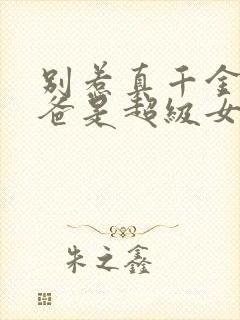 别惹真千金
爸是超级女
朱之鑫